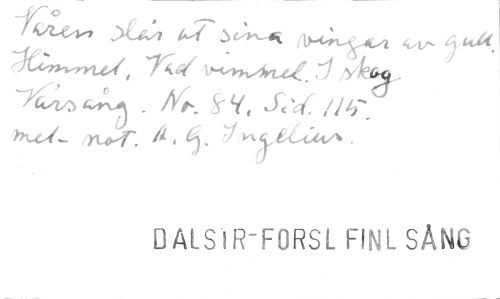 Våren slår ut sina vingar av gull.
Himmel, Vad vimmel. I skog
Vårsång. No. 84. Sid. 115.
mel- not. A. G. Ingelius.
DALSIR-FORSL FINL SÅNG